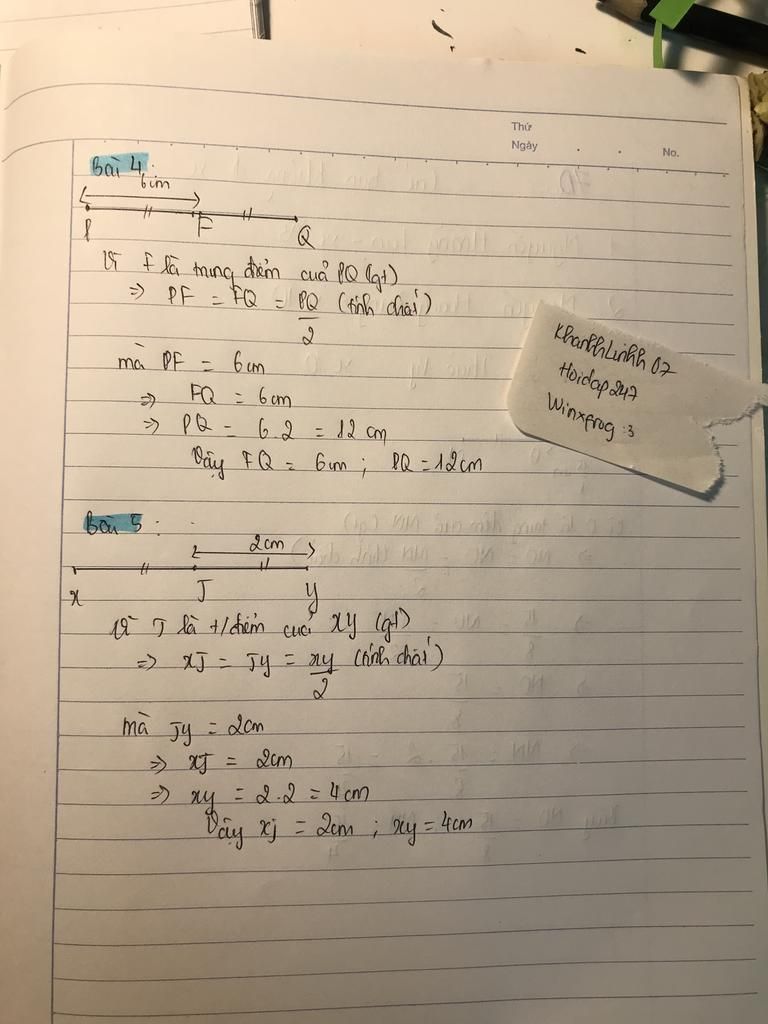 Thứ
Ngày . . No.
Bài 4:
6cm
P F Q
Vì F là trung điểm của PQ (gt)
=> PF = FQ = PQ/2 (tính chất)
mà PF = 6cm
=> FQ = 6cm
=> PQ = 6.2 = 12 cm
Vậy FQ = 6cm ; PQ = 12cm
KhanhLinhh07
Hoidap247
Winxfrog :3
Bài 5:
2cm
x J y
Vì J là t/điểm của xy (gt)
=> xJ = Jy = xy/2 (tính chất)
mà Jy = 2cm
=> xJ = 2cm
=> xy = 2.2 = 4cm
Vậy xj = 2cm ; xy = 4cm